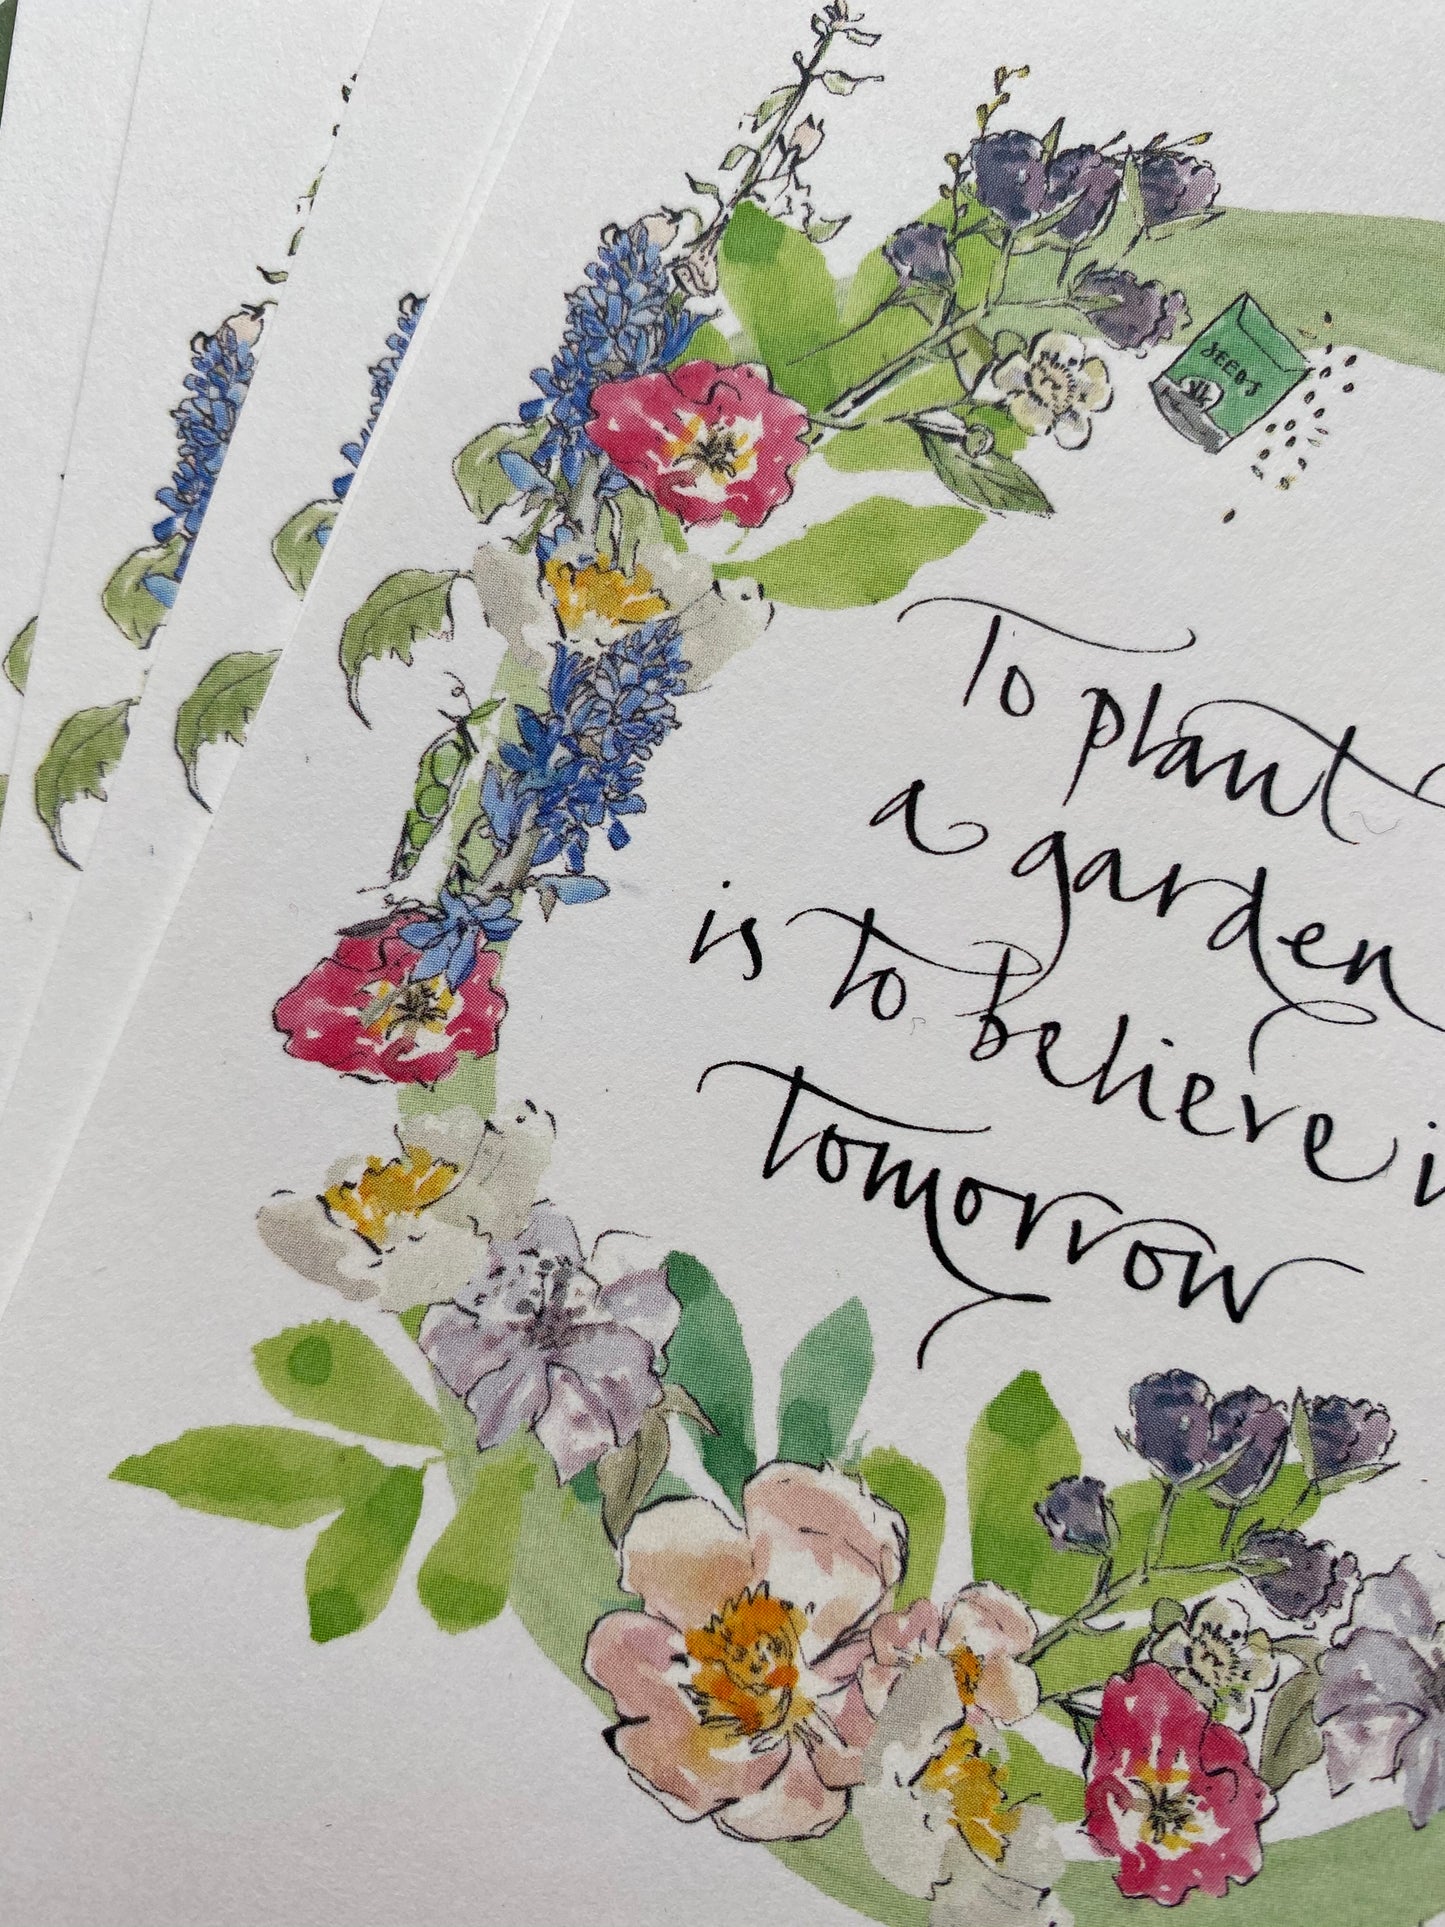 SEEDS
To plant
a garden
is to believe i
tomorrow